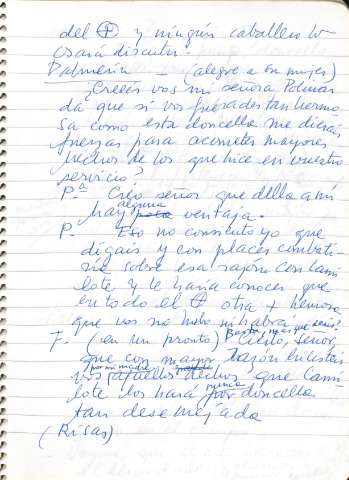 del ⊕ y ningún caballero lo
osará discutir.
Palmerín — (alegre a su mujer)
¿Creéis vos mi señora Polinar
da que si vos fuerades tan hermo
sa como esta doncella me dierais
fuerzas para acometer mayores
hechos de los que hice en vuestro
servicio?
Pª Creo señor que della a mí
hay alguna ventaja.
P. Eso no consiento yo que
digais y con placer combati
ría sobre esa razón con Cami
lote y le haría conocer que
en todo el ⊕ otra + hermosa
que vos no hubo ni habrá
F. (en un pronto) Basta, mas que señor!
Cierto, señor,
que con mayor razón
vos por mi madre aquellos hechos que Cami
lote los hará nunca por doncella
tan desemejada
(Risas)